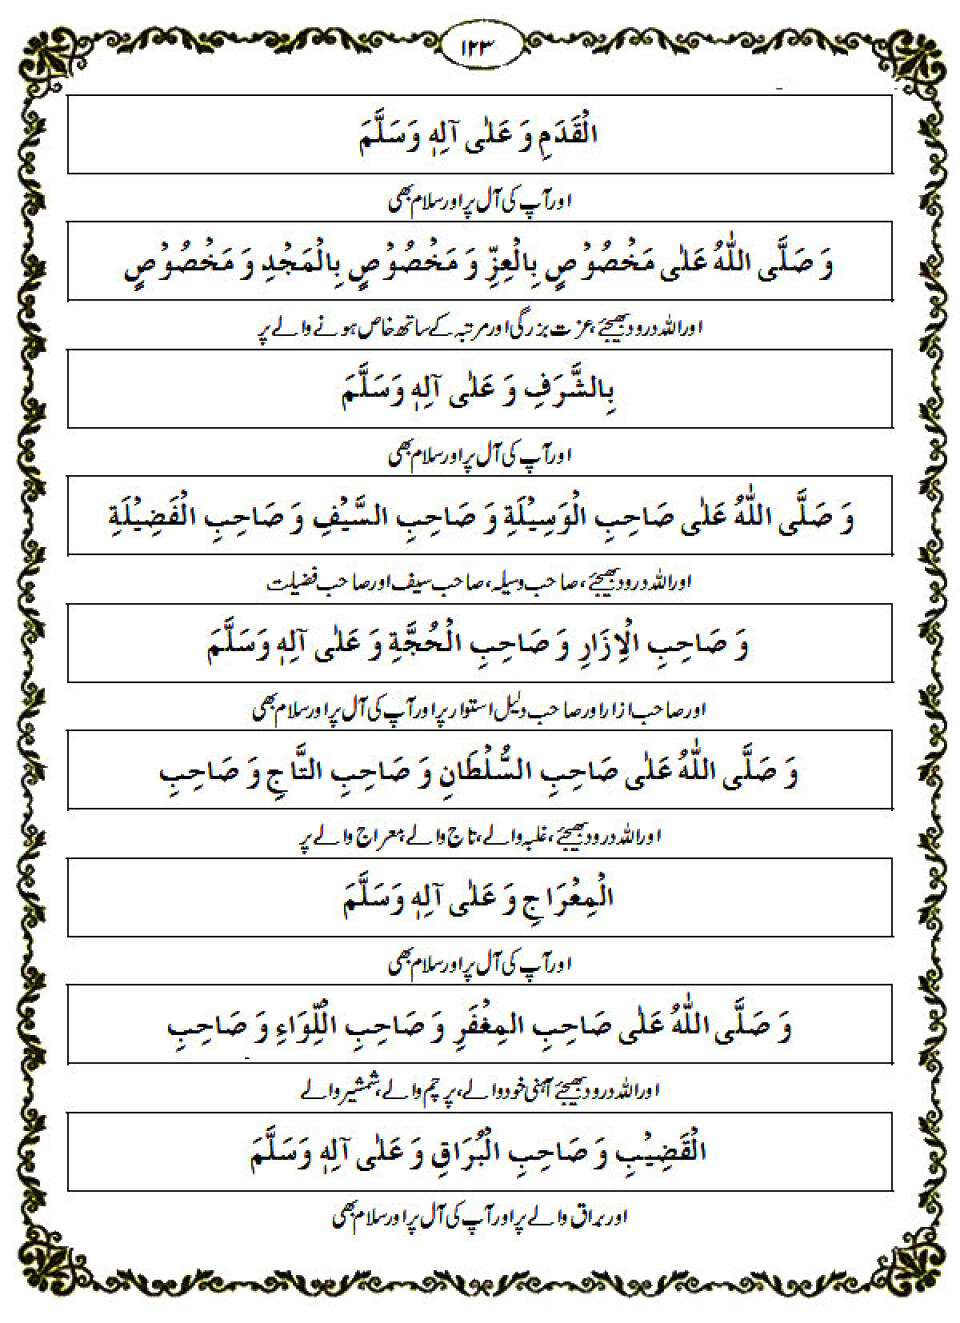 ۱۲۳
الْقَدَمِ وَ عَلٰى آلِهٖ وَسَلَّمَ
اور آپ کی آل پر اور سلام بھی
وَ صَلَّى اللّٰهُ عَلٰى مَخْصُوْصٍ بِالْعِزِّ وَ مَخْصُوْصٍ بِالْمَجْدِ وَ مَخْصُوْصٍ
اور اللہ درود بھیجئے، عزت بزرگی اور مرتبہ کے ساتھ خاص ہونے والے پر
بِالشَّرَفِ وَ عَلٰى آلِهٖ وَسَلَّمَ
اور آپ کی آل پر اور سلام بھی
وَ صَلَّى اللّٰهُ عَلٰى صَاحِبِ الْوَسِيْلَةِ وَ صَاحِبِ السَّيْفِ وَ صَاحِبِ الْفَضِيْلَةِ
اور اللہ درود بھیجئے، صاحب وسیلہ، صاحب سیف اور صاحب فضیلت
وَ صَاحِبِ الْاِزَارِ وَ صَاحِبِ الْحُجَّةِ وَ عَلٰى آلِهٖ وَسَلَّمَ
اور صاحب ازار اور صاحب دلیل استوار پر اور آپ کی آل پر اور سلام بھی
وَ صَلَّى اللّٰهُ عَلٰى صَاحِبِ السُّلْطَانِ وَ صَاحِبِ التَّاجِ وَ صَاحِبِ
اور اللہ درود بھیجئے، غلبہ والے، تاج والے، معراج والے پر
الْمِعْرَاجِ وَ عَلٰى آلِهٖ وَسَلَّمَ
اور آپ کی آل پر اور سلام بھی
وَ صَلَّى اللّٰهُ عَلٰى صَاحِبِ المِغْفَرِ وَ صَاحِبِ الْلِّوَاءِ وَ صَاحِبِ
اور اللہ درود بھیجئے آہنی خود والے، پرچم والے، شمشیر والے
الْقَضِيْبِ وَ صَاحِبِ الْبُرَاقِ وَ عَلٰى آلِهٖ وَسَلَّمَ
اور براق والے پر اور آپ کی آل پر اور سلام بھی